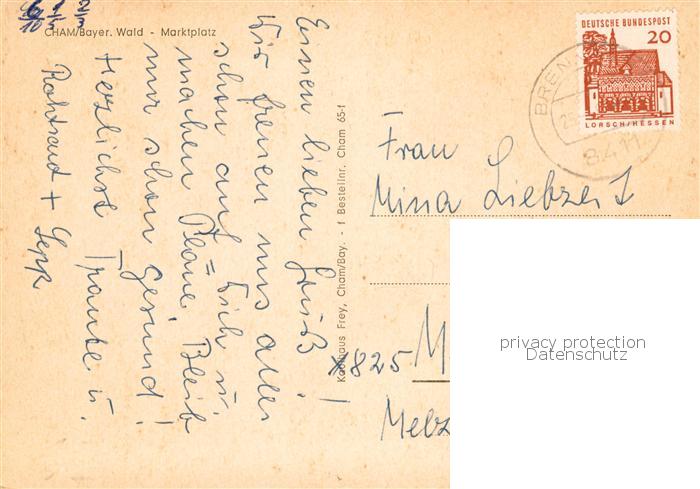 6 1 2
10 5 3
CHAM/Bayer. Wald - Marktplatz
Einen lieben Gruß!
Wir freuen uns alle
schon auf Dich u.
machen Pläne. Bleib
mir schon gesund!
Herzlichst Traute u.
Rohtraut + Sepp
Kaufhaus Frey, Cham/Bay. - 1 Bestellnr. Cham 65-1
DEUTSCHE BUNDESPOST
20
LORSCH/HESSEN
8411
Frau
Mina Liebzeit
825 M
privacy protection
Datenschutz